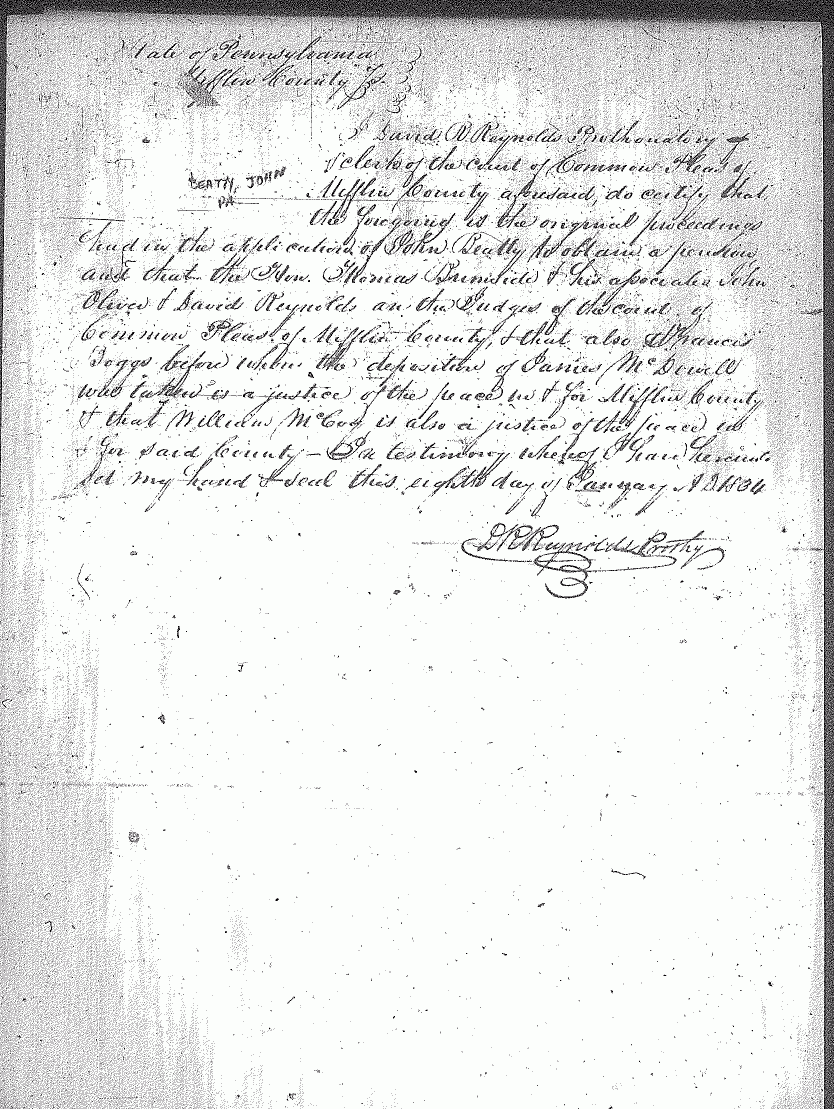 State of Pennsylvania
Mifflin County Ss.
I David R Reynolds Prothonatory &
clerk of the court of Common Pleas of
BEATTY, JOHN
PA
Mifflin County aforesaid, do certify that
the foregoing is the original proceedings
had in the application of John Beatty to obtain a pension
and that the Hon. Thomas Burnside & his associates John
Oliver & David Reynolds are the Judges of the court of
Common Pleas of Mifflin County, & that also Francis
Boggs before whom the deposition of James McDowell
was taken is a justice of the peace in & for Mifflin County
& that William McCoy is also a justice of the peace in
& for said County – In testimony whereof I have hereunto
set my hand & seal this eighth day of January AD 1834
D R Reynolds Prothy